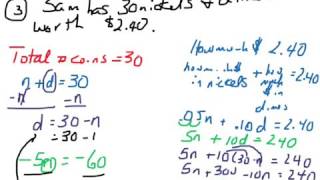 ③ Sam has 30 nickels &
worth $2.40.
Total # coins = 30
n + d = 30
-n -n
d = 30 - n
= 30 - 1
-5n = -60
How much $
in nickels + how
much $
in
dimes = 2.40
.05n + .10d = 2.40
5n + 10d = 240
5n + 10(30-n) = 240
5n + 300 - 10n = 240